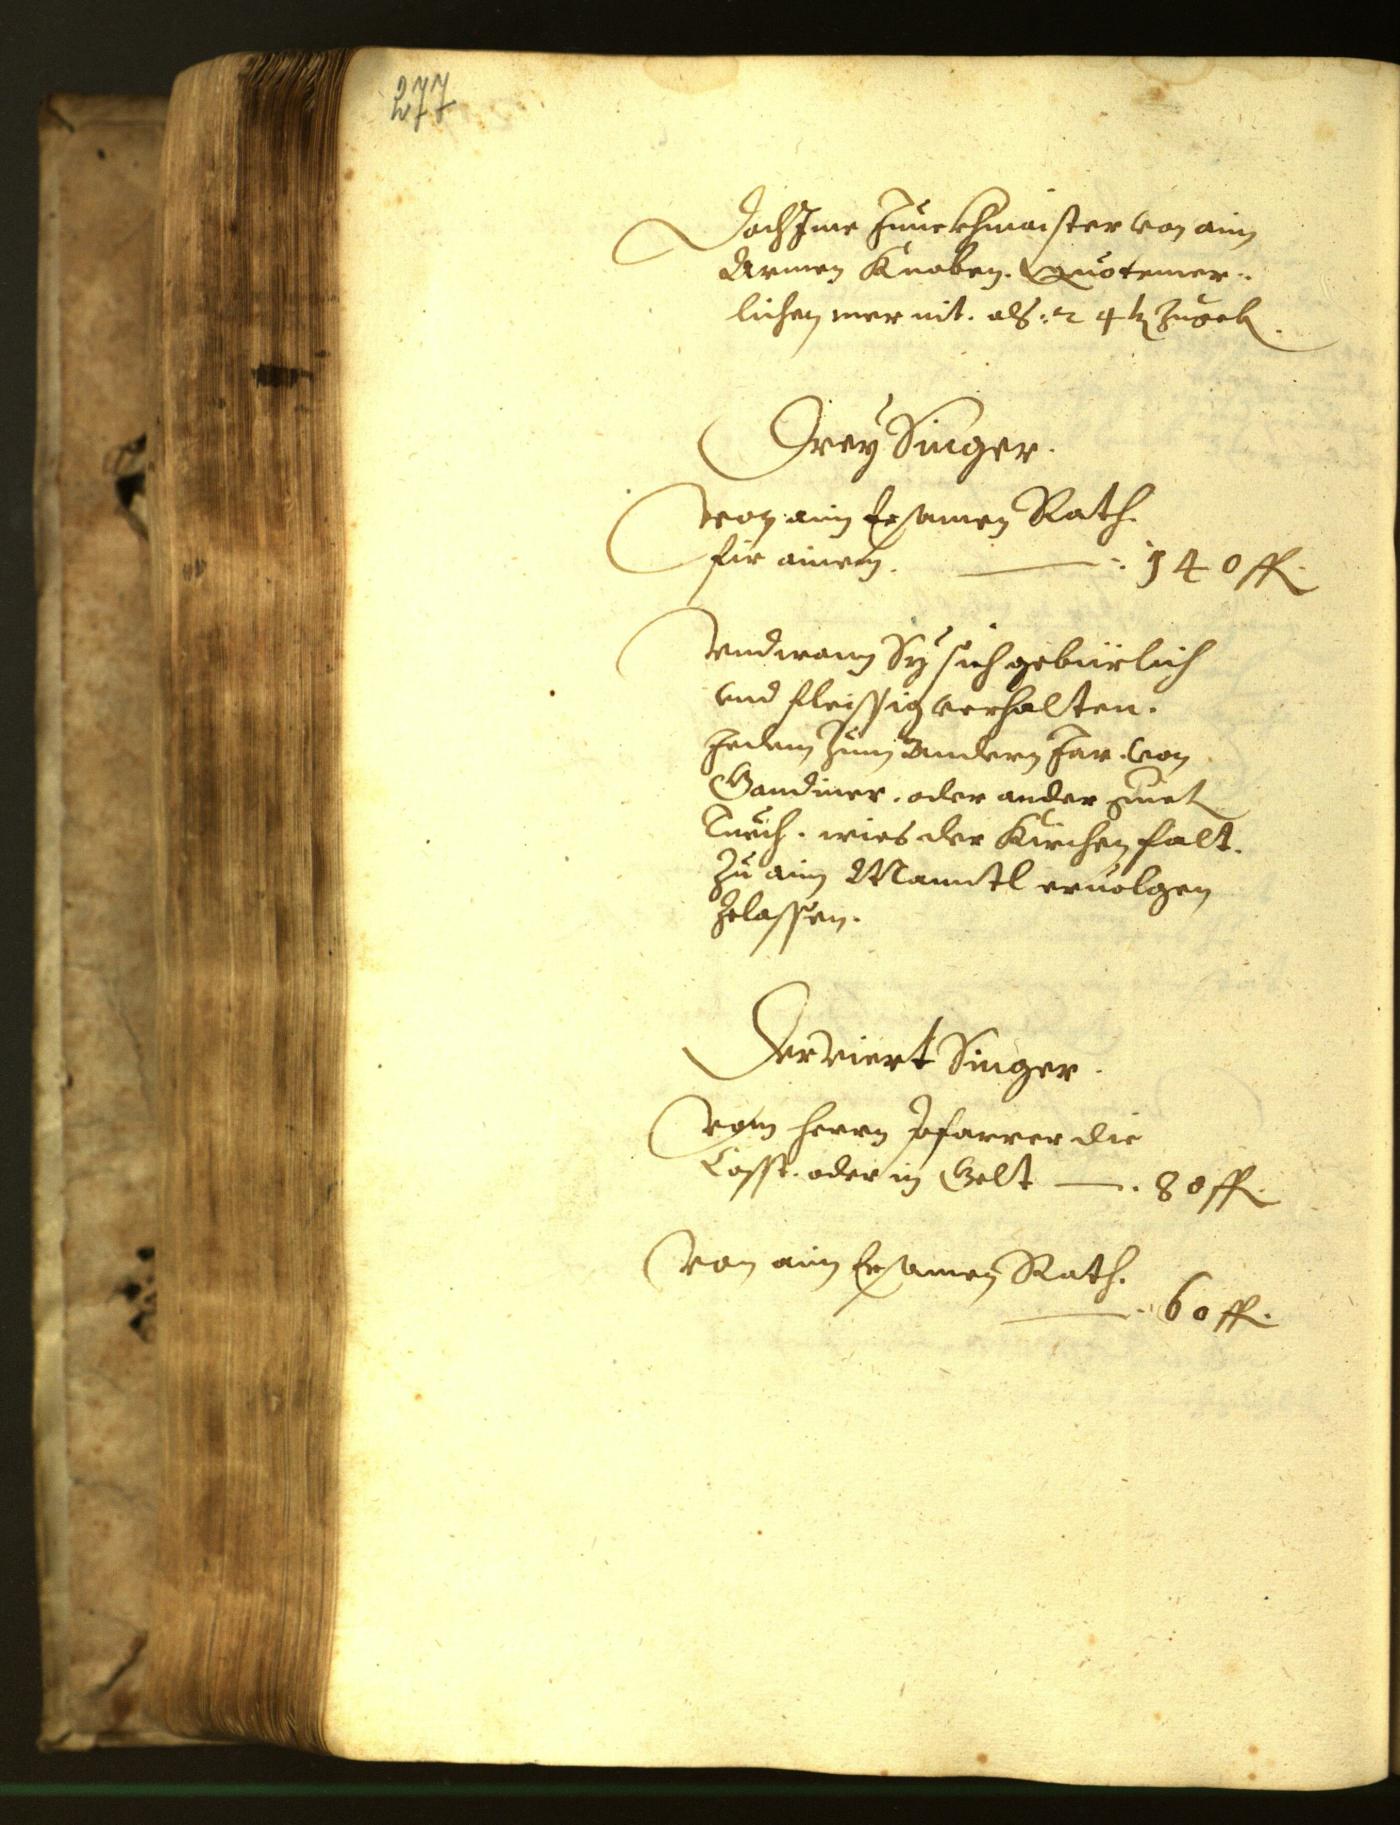 277
Doch Ime Junckhmaister von ain
Armen Knaben. Quotemer-
lichen mer nit. als: 24 k
Drey Singer.
von ain Ersamen Rath.
für ainen. 140 fl.
Vnd wann Sy sich gebürlich
vnd fleissig verhalten.
Jedem zum Andern Jar. von
oder ander
Tuech. wies der Kirchen falt.
Zu ain Manntl eruolgen
Zelassen.
Der viert Singer.
Vom herrn Pfarrer die
Cosst. oder in Gelt 80 fl.
Von ain Ersamen Rath.
60 fl.